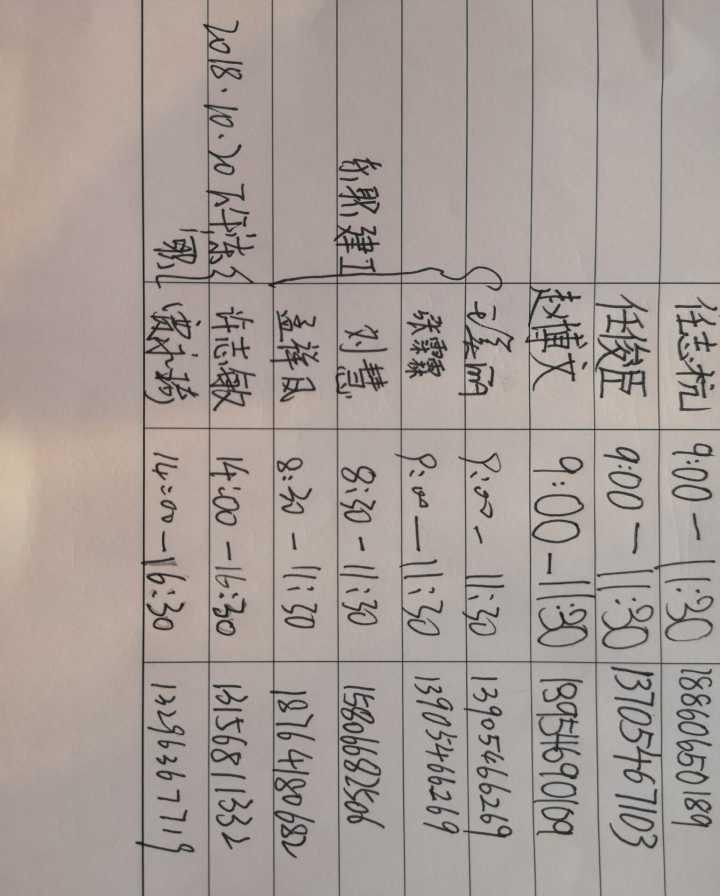 任志杭 9:00－11:30 18860650189
任俊臣 9:00－11:30 13705467103
赵博文 9:00－11:30 18951690109
9:00－11:30 13905466269
张霖霖 9:00－11:30 13905466269
东职建工 刘慧 8:30－11:30 15806682506
孟祥民 8:30－11:30 18764180682
2018.10.20下午 许志敏 14:00－16:30 13156811332
14:00－16:30 13296367719